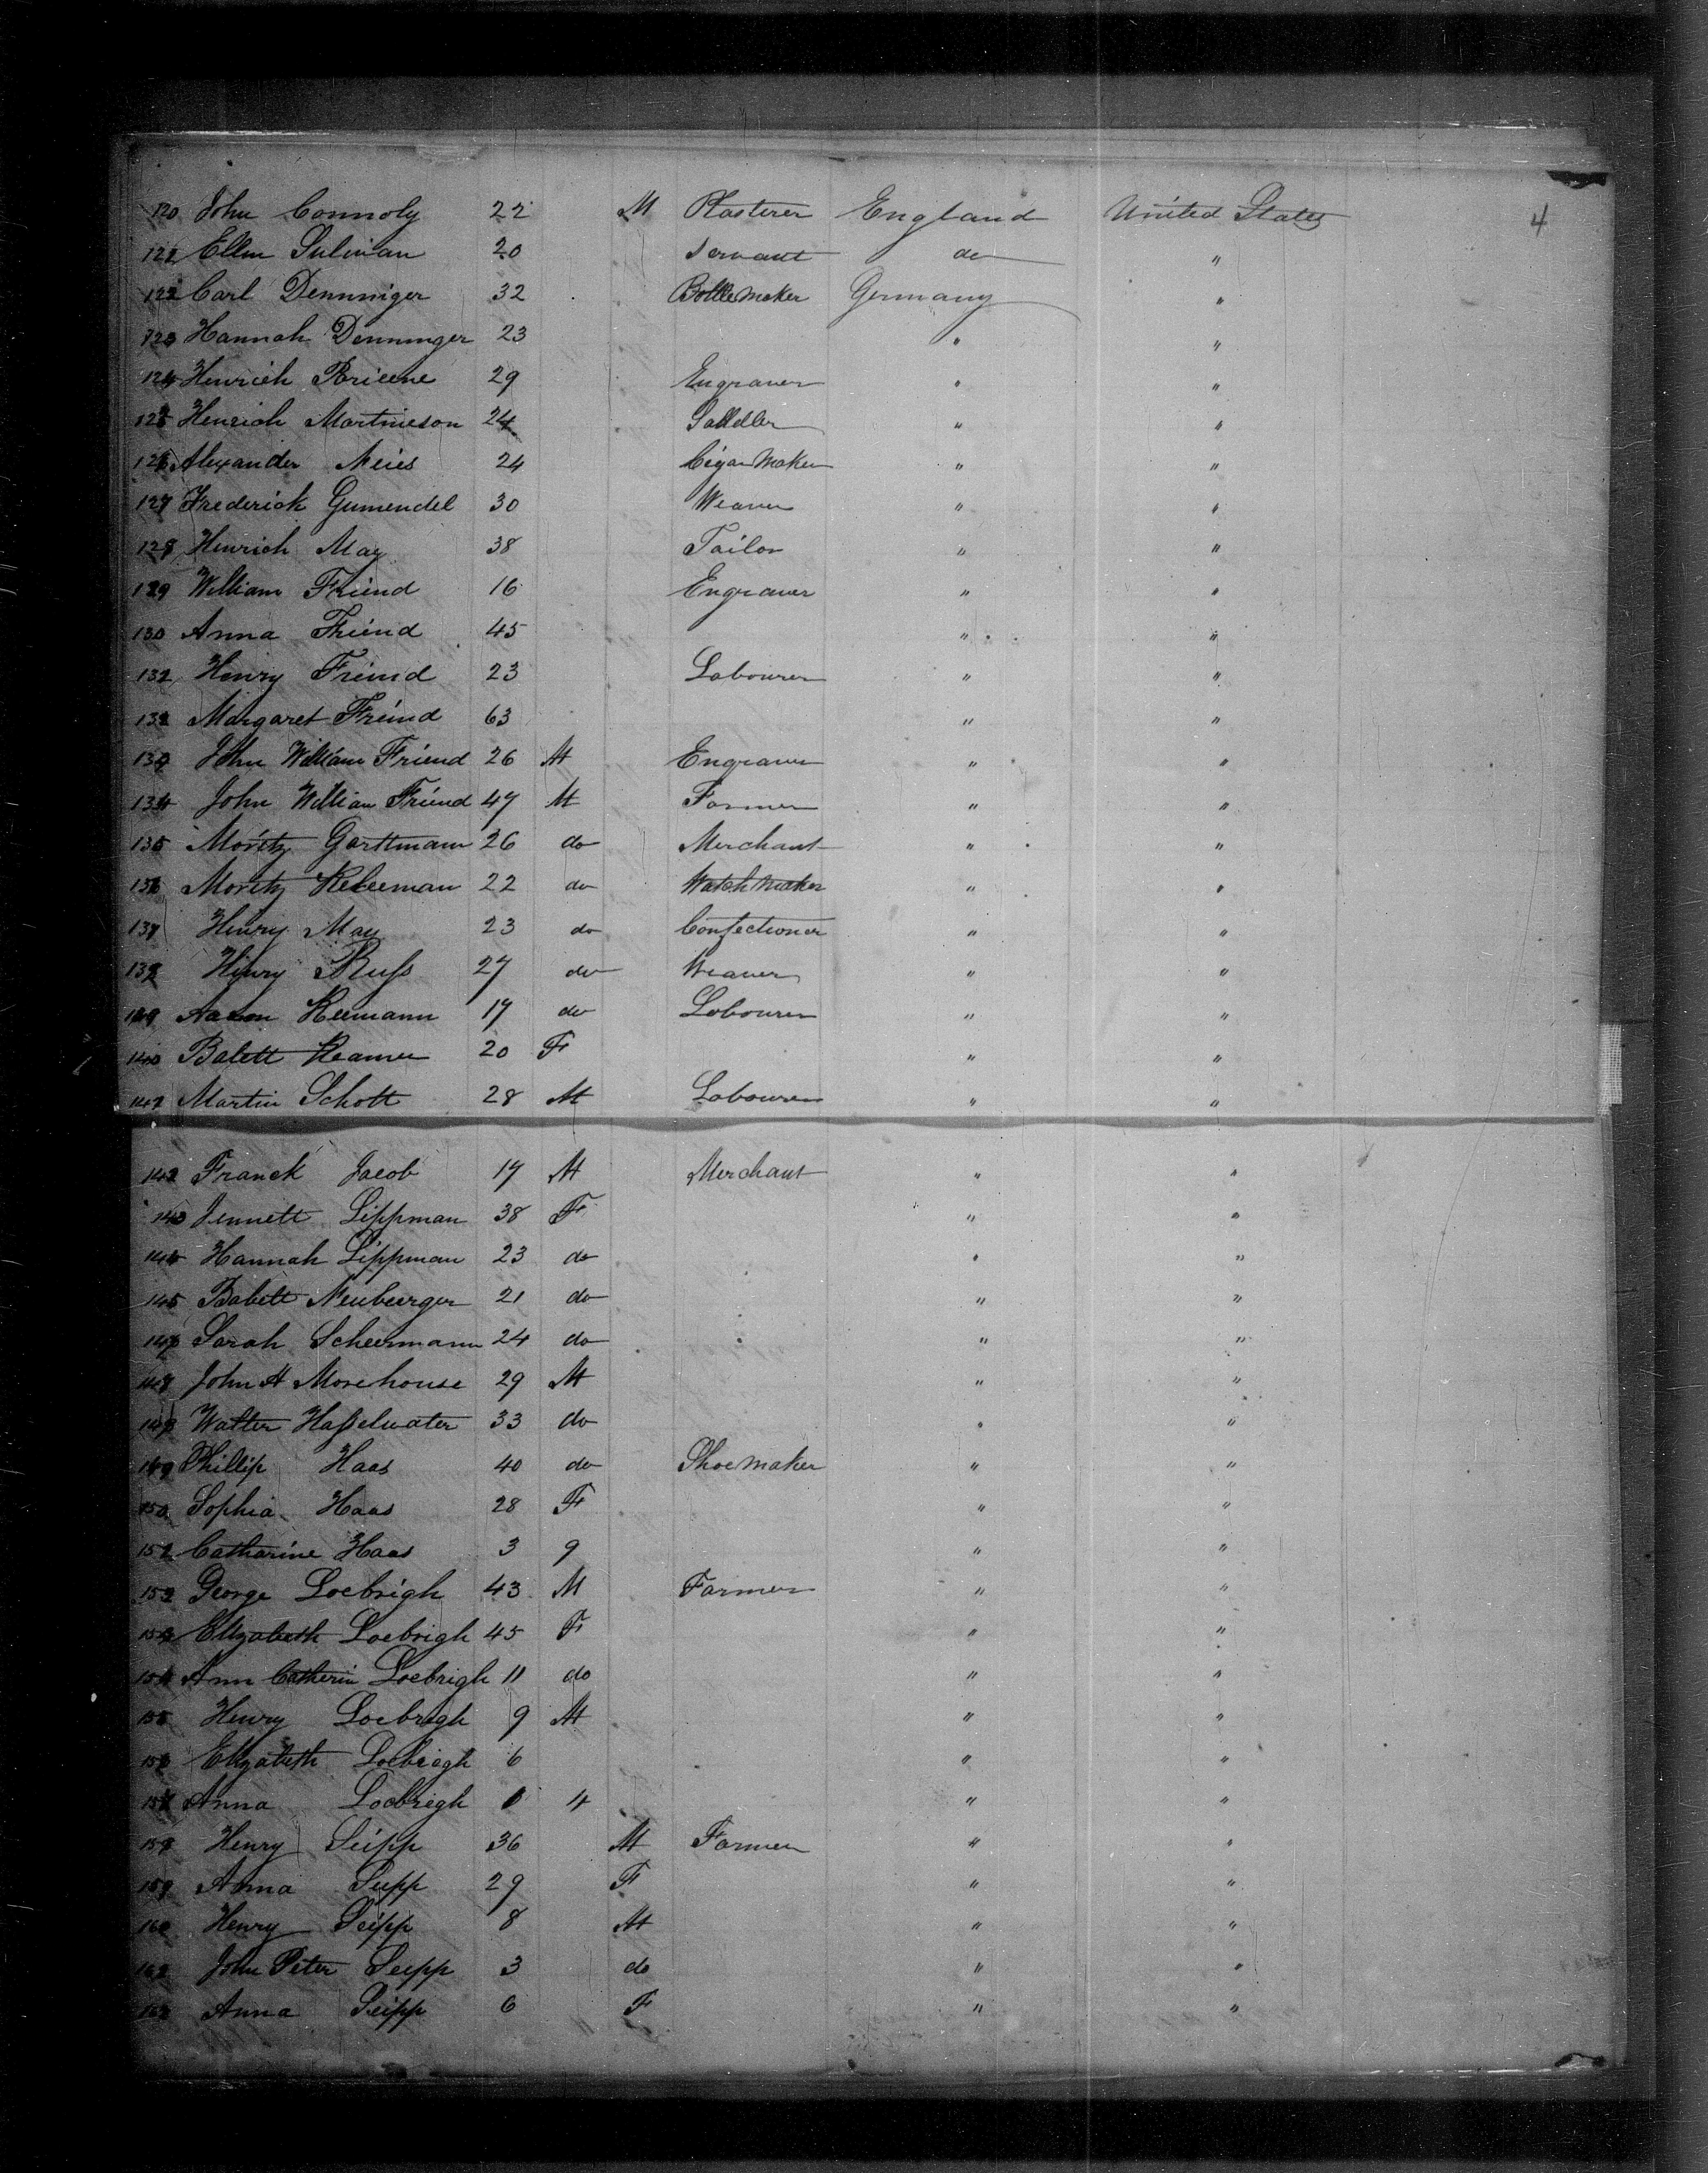 4
120 John Connoly 22 M Plasterer England United States
121 Ellen Sulivan 20 Servant do "
122 Carl Dennniger 32 Bottle Maker Germany "
123 Hannah Denninger 23 " "
124 Henrich 29 Engraver " "
125 Henrich Martinieson 24 Saddler " "
126 Alexander Meies 24 Cigar Maker " "
127 Frederick Gumendel 30 Weaver " "
128 Henrich May 38 Tailor " "
129 William Friend 16 Engraver " "
130 Anna Friend 45 " "
Henry Friend 23 Labourer " "
132 Margaret Friend 63 " "
John William Friend 26 M Engraver " "
134 John William Friend 47 M Farmer " "
135 Moritz Garttmann 26 do Merchant " "
136 Moritz 22 do Watch Maker " "
137 Henry May 23 do Confectioner " "
Henry Ruſs 27 do Weaver " "
Aaron 17 do Labourer " "
140 Babett 20 F " "
Martin Schott 28 M Labourer " "
142 Franck Jacob 17 M Merchant " "
143 Jennett Lippman 38 F " "
Hannah Lippman 23 do " "
145 Babett Neubeerger 21 do " "
Sarah Scheermann 24 do " "
John H Morehouse 29 M " "
Walter Haſselwater 33 do " "
Phillip Haas 40 do Shoemaker " "
150 Sophia Haas 28 F " "
Catharine Haas 3 9 " "
George Loebrigh 43 M Farmer " "
Elizabeth Loebrigh 45 F " "
154 Ann Catherin Loebrigh 11 do " "
155 Henry Loebrigh 9 M " "
Elizabeth Loebrigh 6 " "
Anna Loebrigh 4 " "
Henry Seipp 36 M Farmer " "
159 Anna Seipp 29 F " "
160 Henry Seipp 8 M " "
John Peter Seipp 3 do " "
Anna Seipp 6 F " "